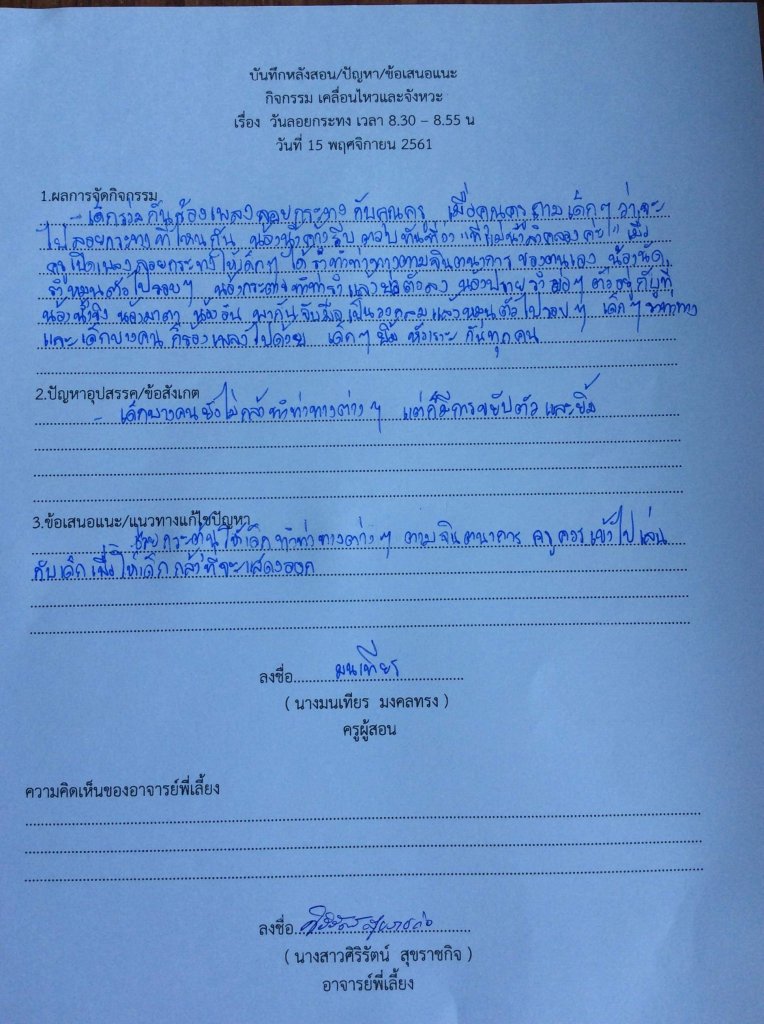 บันทึกหลังสอน/ปัญหา/ข้อเสนอแนะ
กิจกรรม เคลื่อนไหวและจังหวะ
เรื่อง วันลอยกระทง เวลา 8.30 – 8.55 น
วันที่ 15 พฤศจิกายน 2561
1.ผลการจัดกิจกรรม
- เด็กร่วมกันร้องเพลงลอยกระทงกับคุณครู เมื่อคุณครูถามเด็กๆ ว่าจะ
ไปลอยกระทงที่ไหนกัน น้องน้ำค้างรีบตอบทันทีว่า "ที่แม่น้ำลำคลองค่ะ" เมื่อ
ครูเปิดเพลงลอยกระทงให้เด็กๆ ได้รำทำท่าทางตามจินตนาการของตนเอง น้องนัด
รำหมุนตัวไปรอบๆ น้องกระต่ายทำท่ารำและย่อตัวลง น้องปรายรำย่อๆ ตัวอยู่กับที่
น้องน้ำขิง น้องมาดา น้องอัน พากันจับมือเป็นวงกลมและหมุนตัวไปรอบๆ เด็กๆ
และเด็กบางคนก็ร้องเพลงไปด้วย เด็กๆ ยิ้ม หัวเราะ กันทุกคน
2.ปัญหาอุปสรรค/ข้อสังเกต
- เด็กบางคนยังไม่กล้าทำท่าทางต่างๆ แต่ก็มีการขยับตัวและยิ้ม
3.ข้อเสนอแนะ/แนวทางแก้ไขปัญหา
ช่วยกระตุ้นให้เด็กทำท่าทางต่างๆ ตามจินตนาการ ครูควรเข้าไปเล่น
กับเด็กเพื่อให้เด็กกล้าที่จะแสดงออก
ลงชื่อ มนเทียร
( นางมนเทียร มงคลทรง )
ครูผู้สอน
ความคิดเห็นของอาจารย์พี่เลี้ยง
ลงชื่อ
( นางสาวศิริรัตน์ สุขราชกิจ )
อาจารย์พี่เลี้ยง